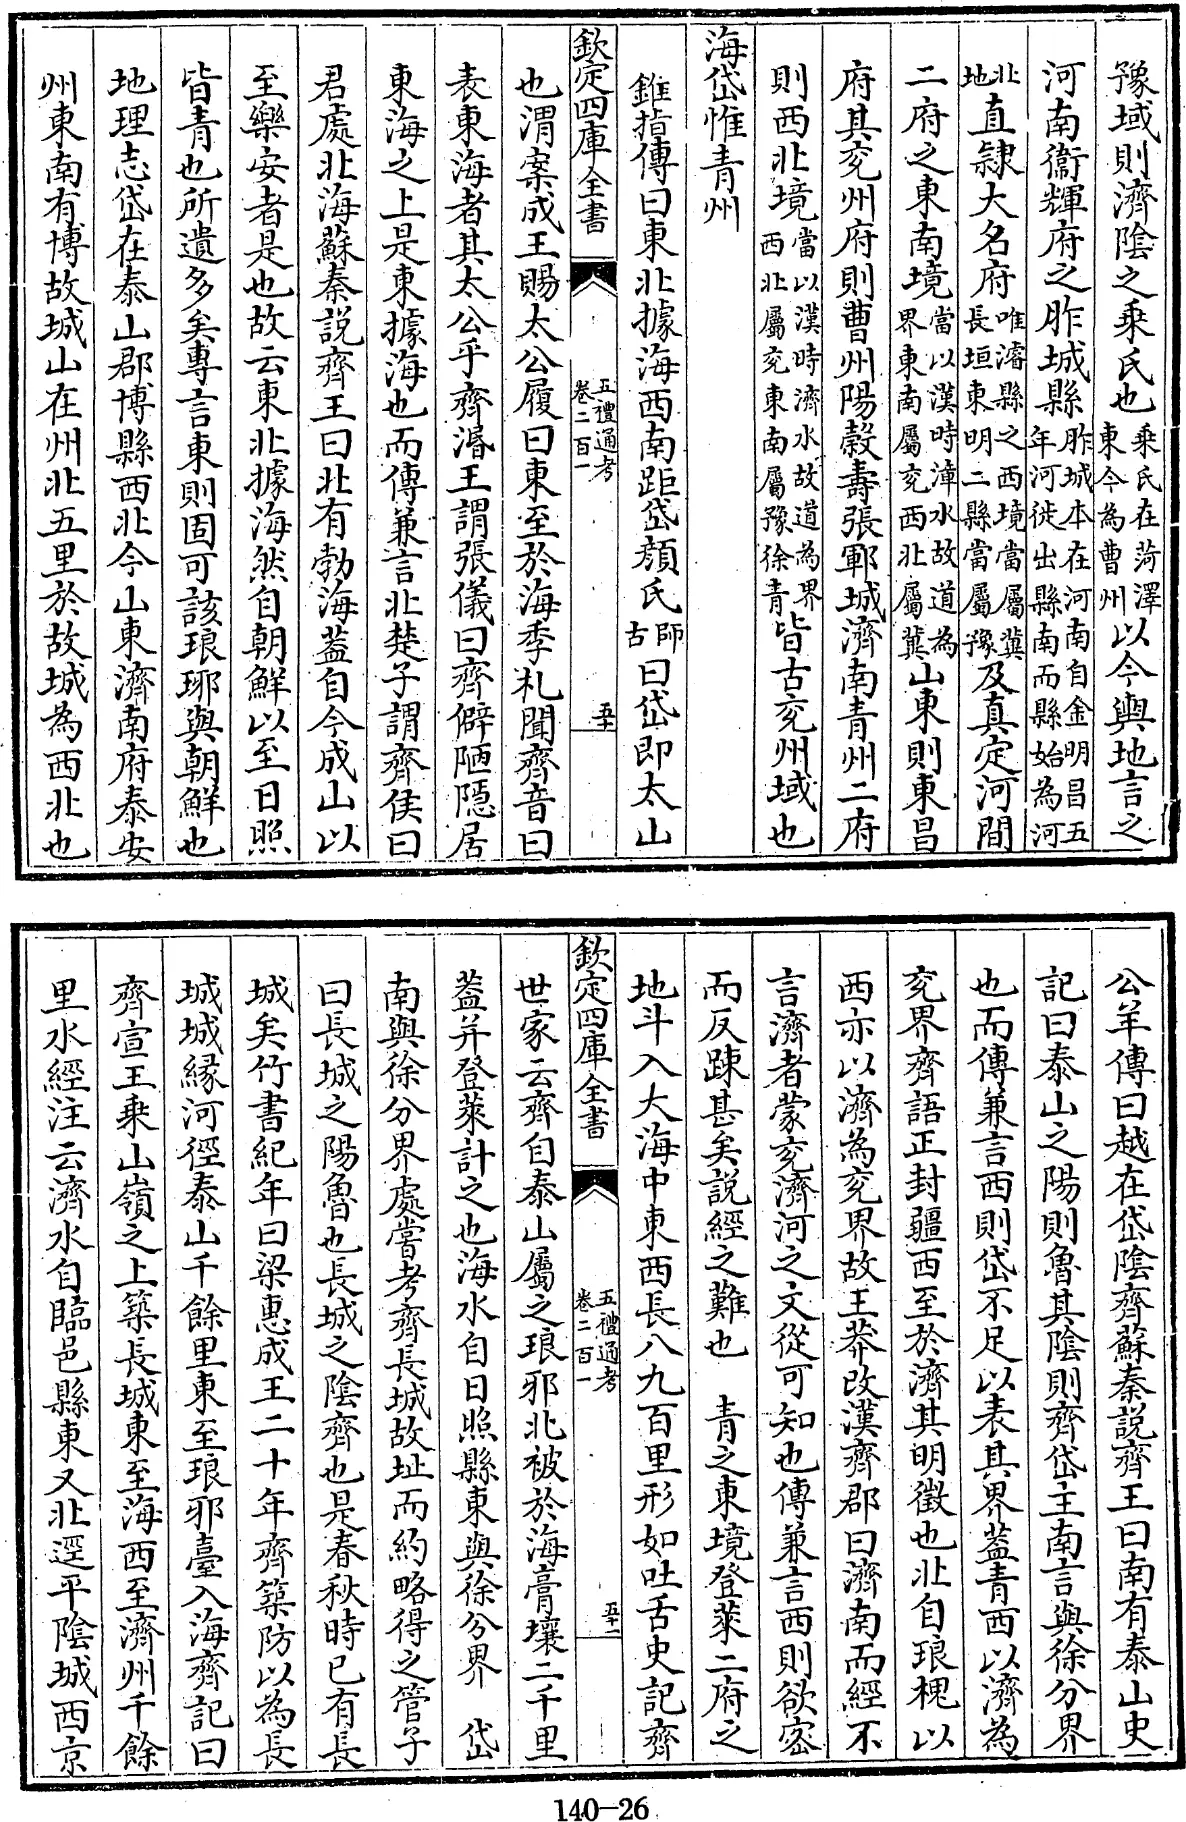 豫域則濟陰之乘氏也乘氏在菏澤東今為曹州以今輿地言之
河南衞輝府之胙城縣胙城本在河南自金明昌五年河徙出縣南而縣始為河
北地直隸大名府唯濬縣之西境當屬冀長垣東明二縣當屬豫及真定河間
二府之東南境當以漢時漳水故道為界東南屬兗西北屬冀山東則東昌
府其兗州府則曹州陽榖壽張鄆城濟南青州二府
則西北境當以漢時濟水故道為界西北屬兗東南屬豫徐青皆古兗州域也
海岱惟青州
錐指傳曰東北據海西南距岱顔氏師古曰岱即太山
欽定四庫全書
五禮通考
卷二百一
五十
也渭案成王賜太公履曰東至於海季札聞齊音曰
表東海者其太公乎齊湣王謂張儀曰齊僻陋隱居
東海之上是東據海也而傳兼言北楚子謂齊侯曰
君處北海蘇秦説齊王曰北有勃海葢自今成山以
至樂安者是也故云東北據海然自朝鮮以至日照
皆青也所遺多矣專言東則固可該琅琊與朝鮮也
地理志岱在泰山郡博縣西北今山東濟南府泰安
州東南有博故城山在州北五里於故城為西北也
公羊傳曰越在岱陰齊蘇秦説齊王曰南有泰山史
記曰泰山之陽則魯其陰則齊岱主南言與徐分界
也而傳兼言西則岱不足以表其界葢青西以濟為
兗界齊語正封疆西至於濟其明徵也北自琅槐以
西亦以濟為兗界故王莽改漢齊郡曰濟南而經不
言濟者蒙兗濟河之文從可知也傳兼言西則欲密
而反踈甚矣説經之難也　青之東境登萊二府之
地斗入大海中東西長八九百里形如吐舌史記齊
欽定四庫全書
五禮通考
卷二百一
五十一
世家云齊自泰山屬之琅邪北被於海膏壤二千里
葢并登萊計之也海水自日照縣東與徐分界　岱
南與徐分界處嘗考齊長城故址而約略得之管子
曰長城之陽魯也長城之陰齊也是春秋時已有長
城矣竹書紀年曰梁惠成王二十年齊築防以為長
城城緣河徑泰山千餘里東至琅邪臺入海齊記曰
齊宣王乘山嶺之上築長城東至海西至濟州千餘
里水經注云濟水自臨邑縣東又北逕平陰城西京
140-26